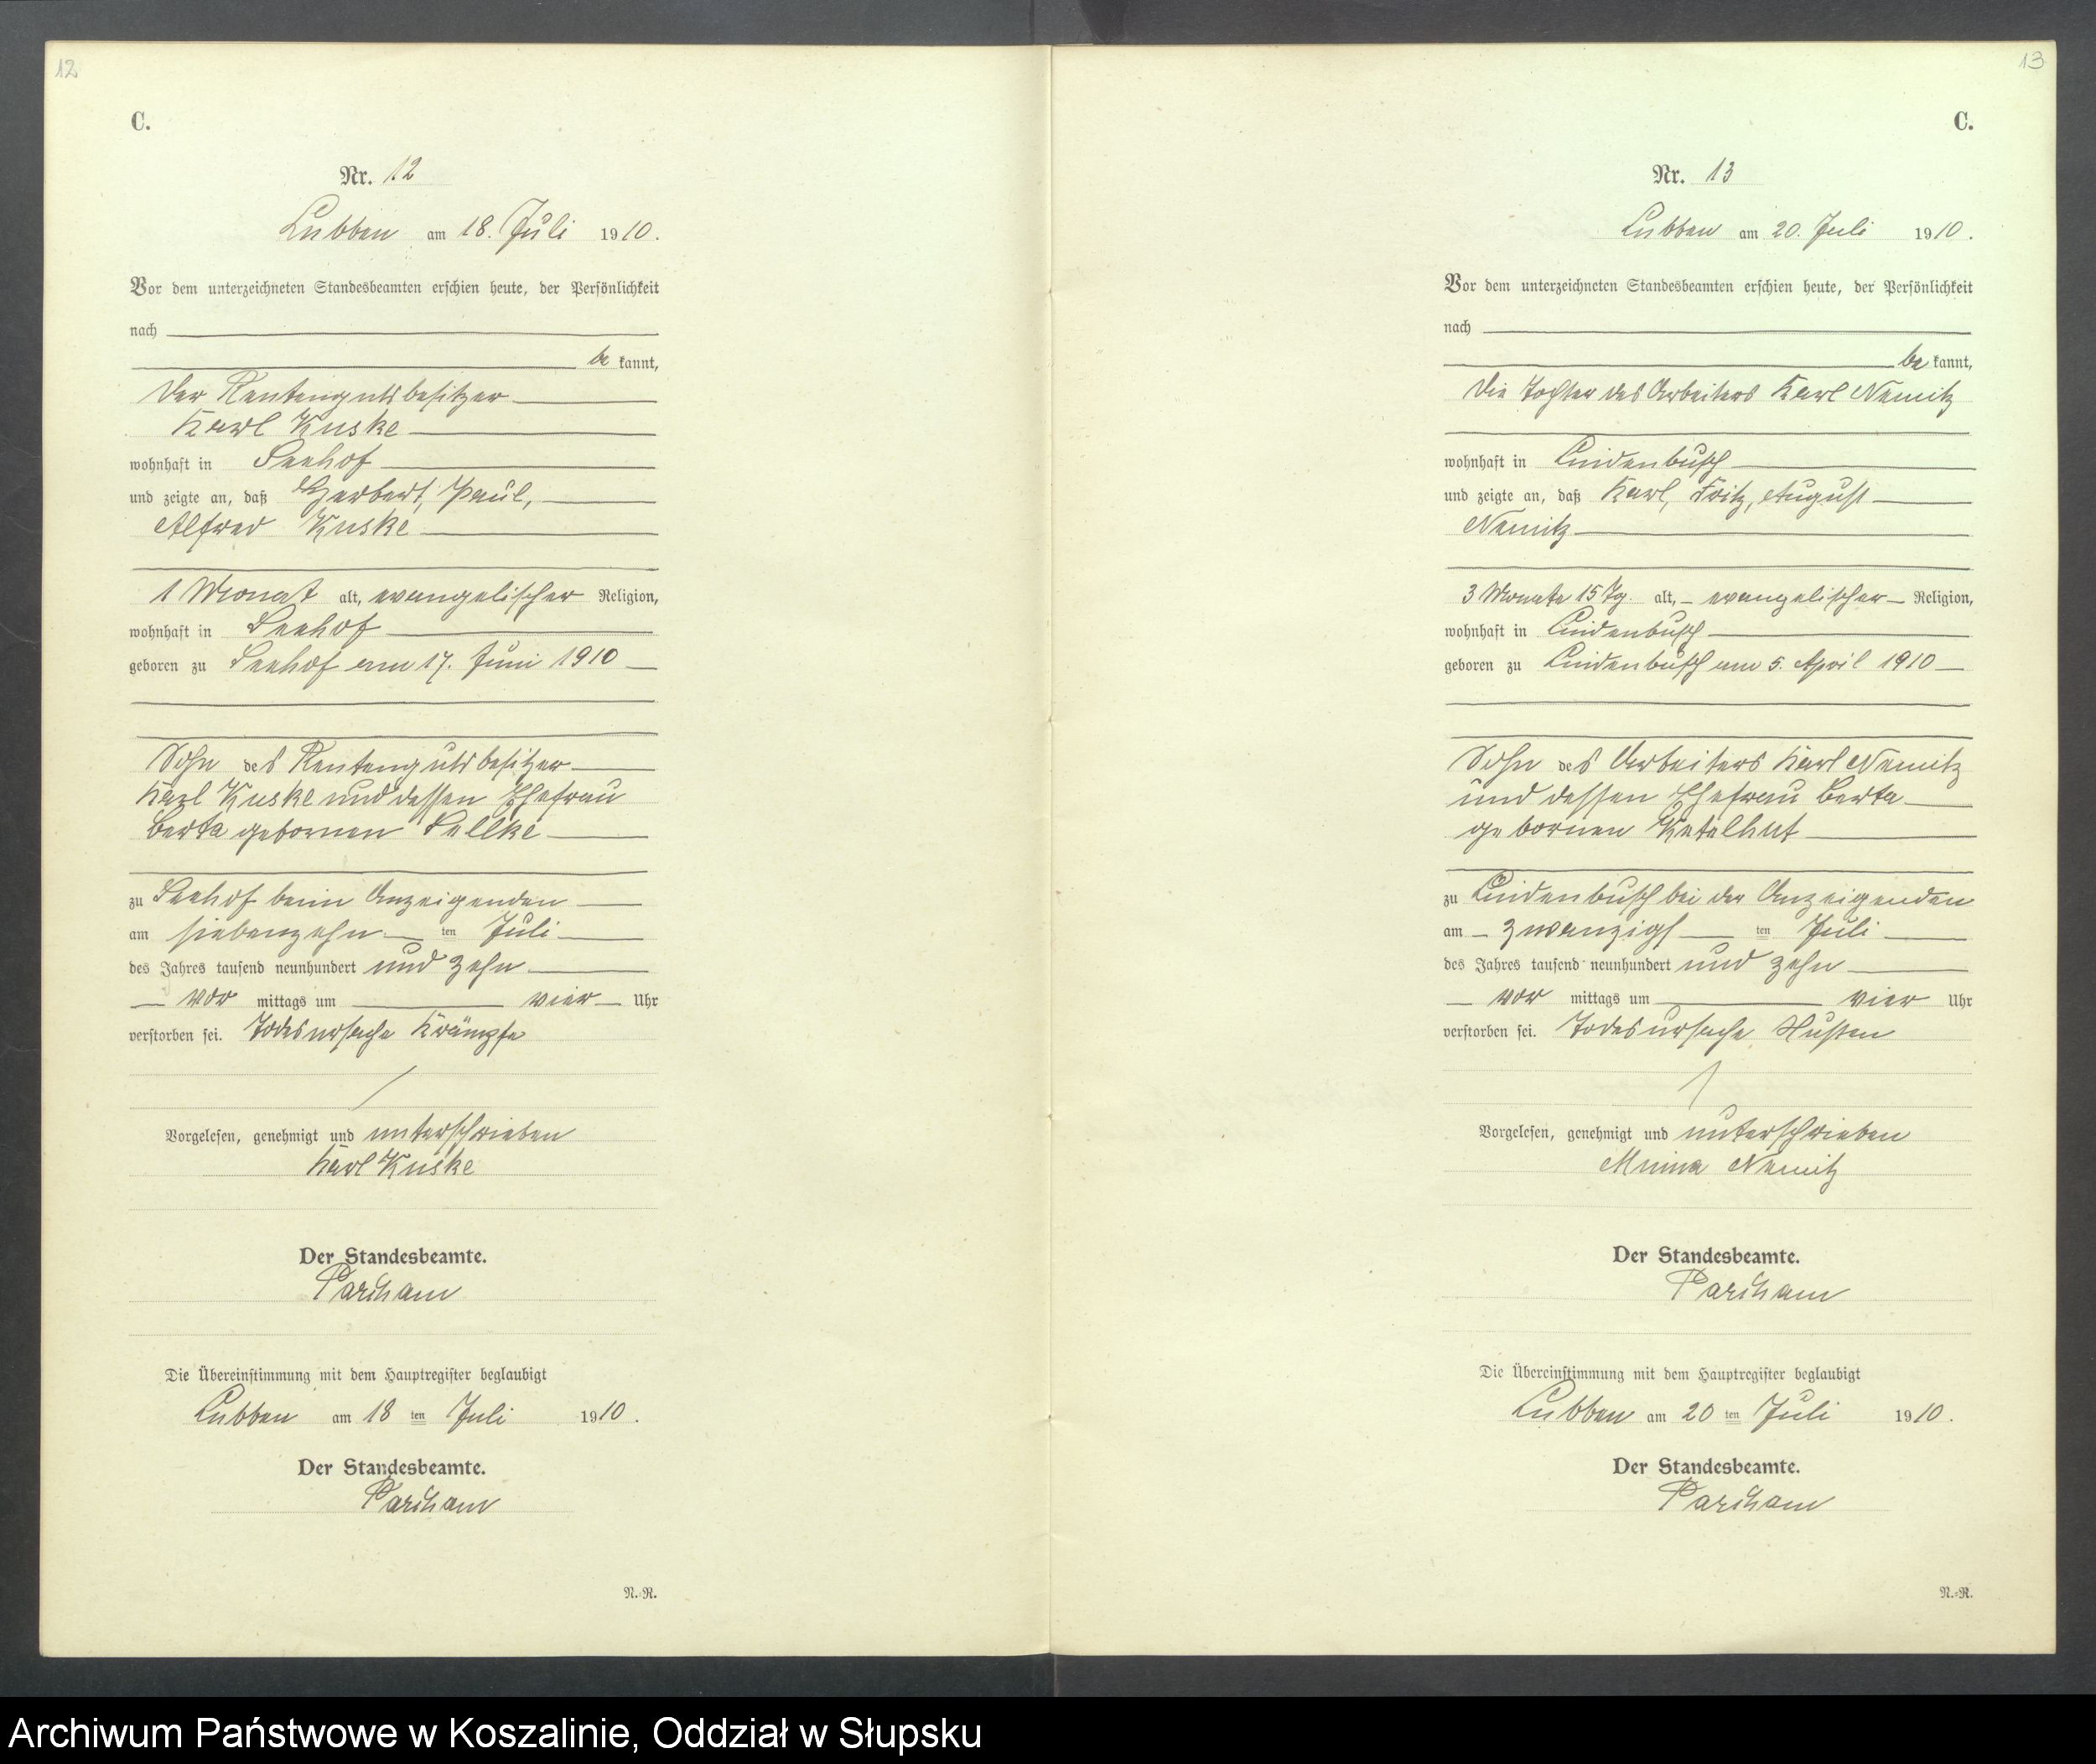 12
C.
Nr. 12
Lubben am 18. Juli 1910.
Vor dem unterzeichneten Standesbeamten erschien heute, der Persönlichkeit
nach
be kannt,
der Rentengutsbesitzer
Karl Kuske
wohnhaft in Seehof
und zeigte an, daß Herbert, Paul,
Alfred Kuske
1 Monat alt, evangelischer Religion,
wohnhaft in Seehof
geboren zu Seehof am 17. Juni 1910
Sohn des Rentengutsbesitzer
Karl Kuske und dessen Ehefrau
Berta gebornen Sellke
zu Seehof beim Anzeigenden
am siebenzehn ten Juli
des Jahres tausend neunhundert und zehn
vor mittags um vier Uhr
verstorben sei. Todesursache Krämpfe
Vorgelesen, genehmigt und unterschrieben
Karl Kuske
Der Standesbeamte.
Der Standesbeamte.
Die Übereinstimmung mit dem Hauptregister beglaubigt
Lubben am 18 ten Juli 1910.
Der Standesbeamte.
N.-R.
13
C.
Nr. 13
Lubben am 20. Juli 1910.
Vor dem unterzeichneten Standesbeamten erschien heute, der Persönlichkeit
nach
be kannt,
die Tochter des Arbeiters Karl Nemitz
wohnhaft in Lindenbusch
und zeigte an, daß Karl, Fritz, August
Nemitz
3 Monate 15 Tg. alt, – evangelischer – Religion,
wohnhaft in Lindenbusch
geboren zu Lindenbusch am 5. April 1910
Sohn des Arbeiters Karl Nemitz
und dessen Ehefrau Berta
gebornen Ketelhut
zu Lindenbusch bei der Anzeigenden
am zwanzigs ten Juli
des Jahres tausend neunhundert und zehn
vor mittags um vier Uhr
verstorben sei. Todesursache Husten
Vorgelesen, genehmigt und unterschrieben
Minna Nemitz
Der Standesbeamte.
Die Übereinstimmung mit dem Hauptregister beglaubigt
Lubben am 20 ten Juli 1910.
Der Standesbeamte.
N.-R.
Archiwum Państwowe w Koszalinie, Oddział w Słupsku